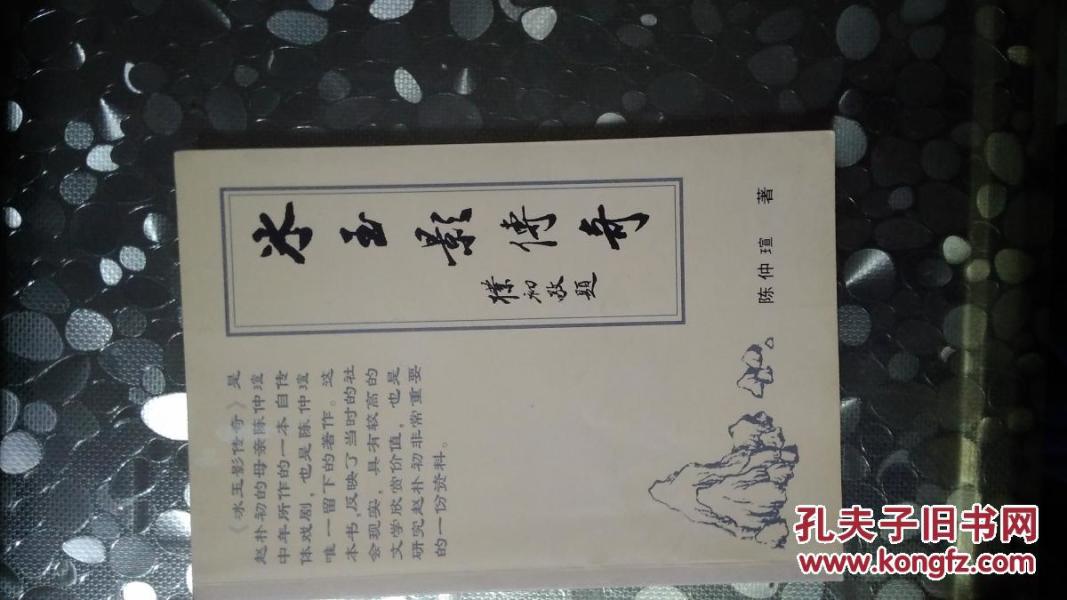 冰玉影傳奇
樸初敬題
陈仲瑄 著
《冰玉影传奇》是
赵朴初的母亲陈仲瑄
中年所作的一本自传
体戏剧，也是陈仲瑄
唯一留下的著作。这
本书，反映了当时的社
会现实，具有较高的
文学欣赏价值，也是
研究赵朴初非常重要
的一份资料。
孔夫子旧书网
www.kongfz.com